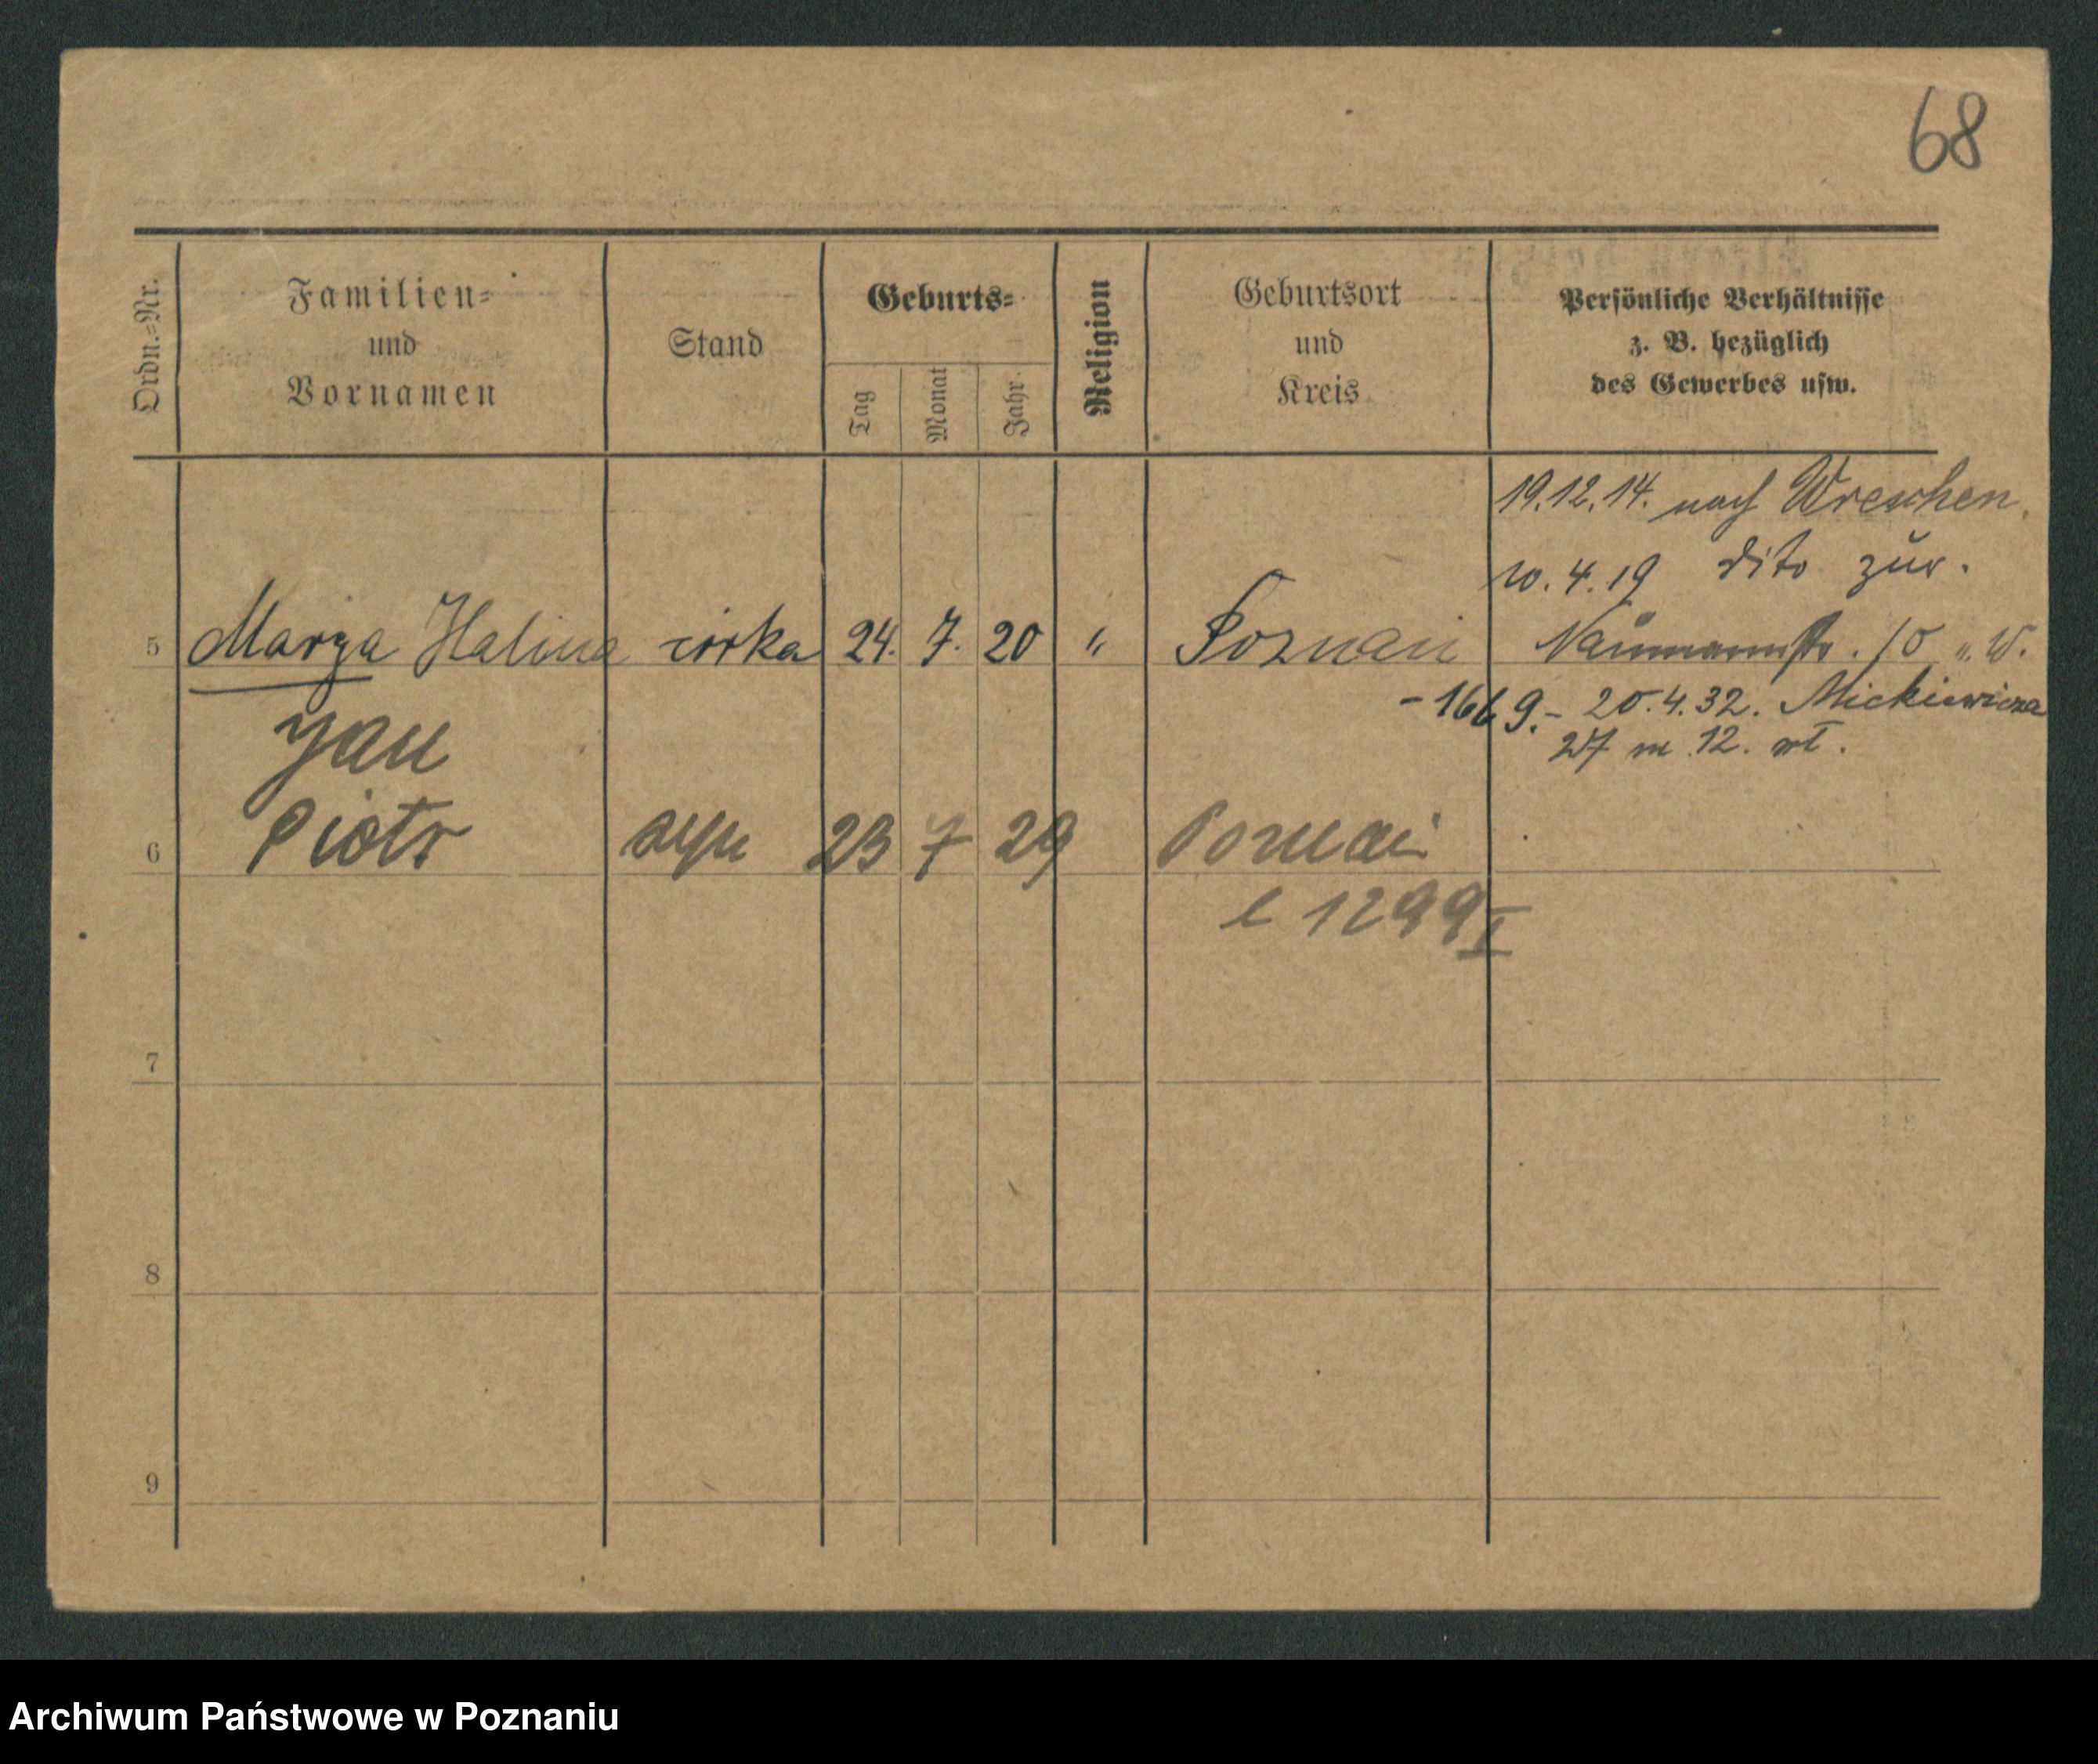 68
Ordn.-Nr.
Familien-
und
Vornamen
Stand
Geburts-
Tag
Monat
Jahr
Religion
Geburtsort
und
Kreis
Persönliche Verhältnisse
z. B. bezüglich
des Gewerbes usw.
19.12.14. nach Wreschen.
10.4.19 dito zur.
5 Marya Halina córka 24. 7. 20 " Poznań Naumannstr. 10 " W.
-1669.- 20.4.32. Mickiewicza
27 m 12. wł.
Jan
6 Piotr syn 23 7 29 Poznań
l 1299 I
7
8
9
Archiwum Państwowe w Poznaniu